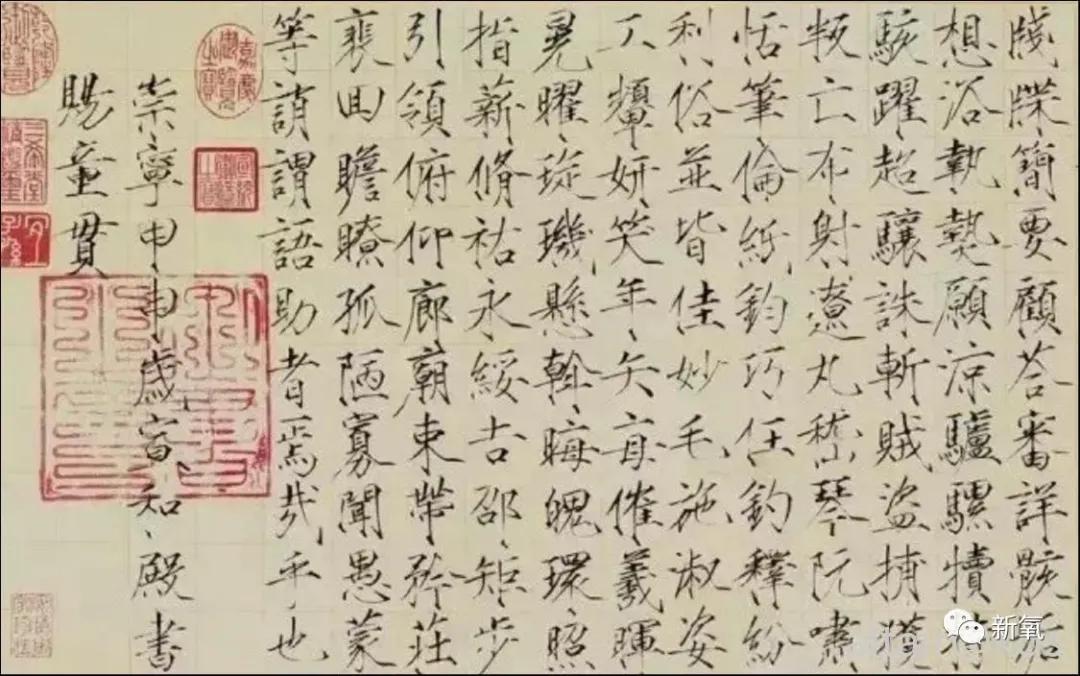 牋牒簡要顧荅審詳骸垢
想浴執熱願涼驢騾犢特
駭躍超驤誅斬賊盜捕獲
叛亡布射遼丸嵇琴阮嘯
恬筆倫紙鈞巧任釣釋紛
利俗並皆佳妙毛施淑姿
工顰妍笑年矢每催羲暉
晃曜琁璣懸斡晦魄環照
指薪脩祐永綏吉邵矩步
引領俯仰廊廟束帶矜莊
裵回瞻瞭孤陋寡聞愚蒙
等誚謂語助者焉哉乎也
崇寧甲申歲宣和殿書
賜童貫
嘉慶御覽之寶
三希堂精鑑璽
宜子孫
新氧